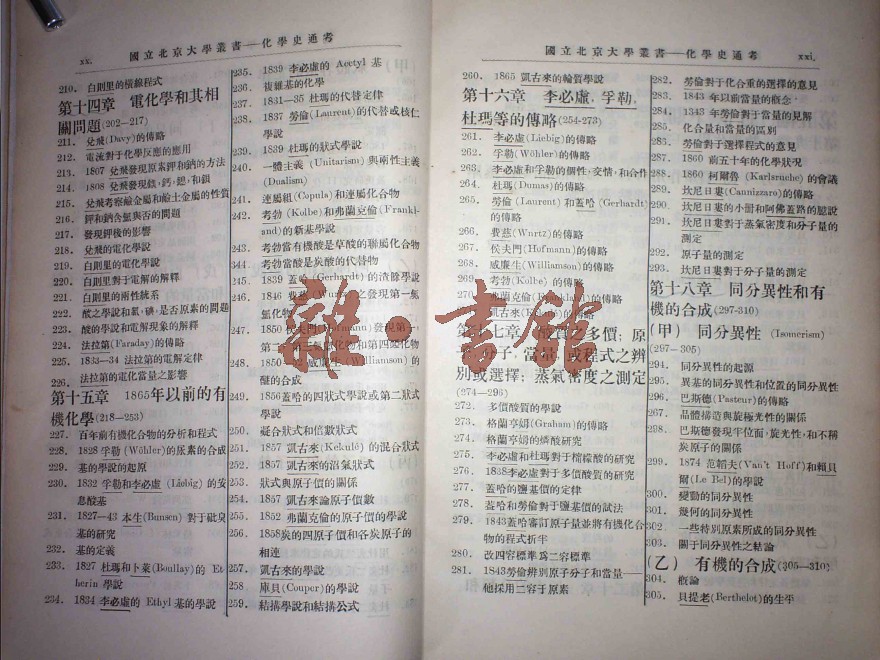 xx. 國立北京大學叢書——化學史通考
210. 白則里的橫線程式
第十四章 電化學和其相
關問題(202—217)
211. 兌飛(Davy)的傳略
212. 電流對于化學反應的應用
213. 1807 兌飛發現原素鉀和鈉的方法
214. 1808 兌飛發現鎂,鈣,鍶,和鋇
215. 兌飛考察鹼金屬和鹼土金屬的性質
216. 鉀和鈉含氫與否的問題
217. 發現鉀後的影響
218. 兌飛的電化學說
219. 白則里的電化學說
220. 白則里對于電解的解釋
221. 白則里的兩性統系
222. 酸之學說和氯,碘,是否原素的問題
223. 酸的學說和電解現象的解釋
224. 法拉第(Faraday)的傳略
225. 1833—34 法拉第的電解定律
226. 法拉第的電化當量之影響
第十五章 1865年以前的有
機化學(218—253)
227. 百年前有機化合物的分析和程式
228. 1828 孚勒(Wöhler)的尿素的合成
229. 基的學說的起原
230. 1832 孚勒和李必虛(Liebig)的安
息酸基
231. 1827—43 本生(Bunsen)對于砒臭
基的研究
232. 基的定義
233. 1827 杜瑪和卜萊(Boullay)的 Et
herin 學說
234. 1834 李必虛的 Ethyl 基的學說
235. 1839 李必虛的 Acetyl 基
236. 複雜基的化學
237. 1831—35 杜瑪的代替定律
238. 1837 勞倫(Laurent)的代替或核仁
學說
239. 1839 杜瑪的狀式學說
240. 一體主義 (Unitarism) 與兩性主義
(Dualism)
241. 連屬組(Copula)和連屬化合物
242. 考勃 (Kolbe) 和弗蘭克倫(Frankl-
and)的新基學說
243. 考勃當有機酸是草酸的聯屬化合物
344. 考勃當酸是炭酸的代替物
245. 1839 蓋哈(Gerhardt)的渣餘學說
246. 1846 費慈(Wurtz)之發現第一氮
氫化物
247. 1850 侯夫門(Hofmann)發現第一
第二第三氮化物和第四氮化物
248. 1850—52 威廉生(Williamson)的
醚的合成
249. 1856蓋哈的四狀式學說或第二狀式
學說
250. 凝合狀式和倍數狀式
251. 1857 凱古來(Kekulé)的混合狀式
252. 1857 凱古來的沼氣狀式
253. 狀式與原子價的關係
254. 1857 凱古來論原子價數
255. 1852 弗蘭克倫的原子價的學說
256. 1858炭的四原子價和各炭原子的
相連
257. 凱古來的學說
258. 庫貝(Couper)的學說
259. 結搆學說和結搆公式
國立北京大學叢書——化學史通考 xxi.
260. 1865 凱古來的輪質學說
第十六章 李必虛,孚勒,
杜瑪等的傳略(254-273)
261. 李必虛(Liebig)的傳略
262. 孚勒(Wöhler)的傳略
263. 李必虛和孚勒的個性,交情,和合作
264. 杜瑪(Dumas)的傳略
265. 勞倫 (Laurent) 和蓋哈 (Gerhardt)
的傳略
266. 費慈(Wurtz)的傳略
267. 侯夫門(Hofmann)的傳略
268. 威廉生(Williamson)的傳略
269. 考勃(Kolbe) 的傳略
270. 弗蘭克倫(Frankland)的傳略
凱古來(Kekulé)的傳略
第十七章 酸質之多價;原
子,當量,或程式之辨
別或選擇;蒸氣密度之測定
(274—296)
272. 多價酸質的學說
273. 格蘭亨姆(Graham)的傳略
274. 格蘭亨姆的燐酸研究
275. 李必虛和杜瑪對于檸檬酸的研究
276. 1838李必虛對于多價酸質的研究
277. 蓋哈的鹽基價的定律
278. 蓋哈和勞倫對于鹽基價的試法
279. 1843蓋哈審訂原子量並將有機化合
物的程式折半
280. 改四容標準爲二容標準
281. 1843勞倫辨別原子分子和當量——
他採用二容于原素
282. 勞倫對于化合重的選擇的意見
283. 1843 年以前當量的概念
284. 1843 年勞倫對于當量的見解
285. 化合量和當量的區別
286. 勞倫對于選擇程式的意見
287. 1860 前五十年的化學狀况
288. 1860 柯爾魯 (Karlsruche) 的會議
289. 坎尼日婁(Cannizzaro)的傳略
290. 坎尼日婁的小冊和阿佛蓋路的臆說
291. 坎尼日婁對于蒸氣密度和分子量的
測定
292. 原子量的測定
293. 坎尼日婁對于分子量的測定
第十八章 同分異性和有
機的合成(297-310)
(甲) 同分異性 (Isomerism)
(297—305)
294. 同分異性的起源
295. 異基的同分異性和位置的同分異性
296. 巴斯德(Pasteur)的傳略
267. 晶體搆造與旋極光性的關係
298. 巴斯德發現半位面,旋光性,和不稱
炭原子的關係
299. 1874 范韜夫(Van't Hoff)和賴貝
爾(Le Bel)的學說
300. 變動的同分異性
301. 幾何的同分異性
302. 一些特別原素所成的同分異性
303. 關于同分異性之結論
(乙) 有機的合成(305—310)
304. 槪論
305. 貝提老(Berthelot)的生平